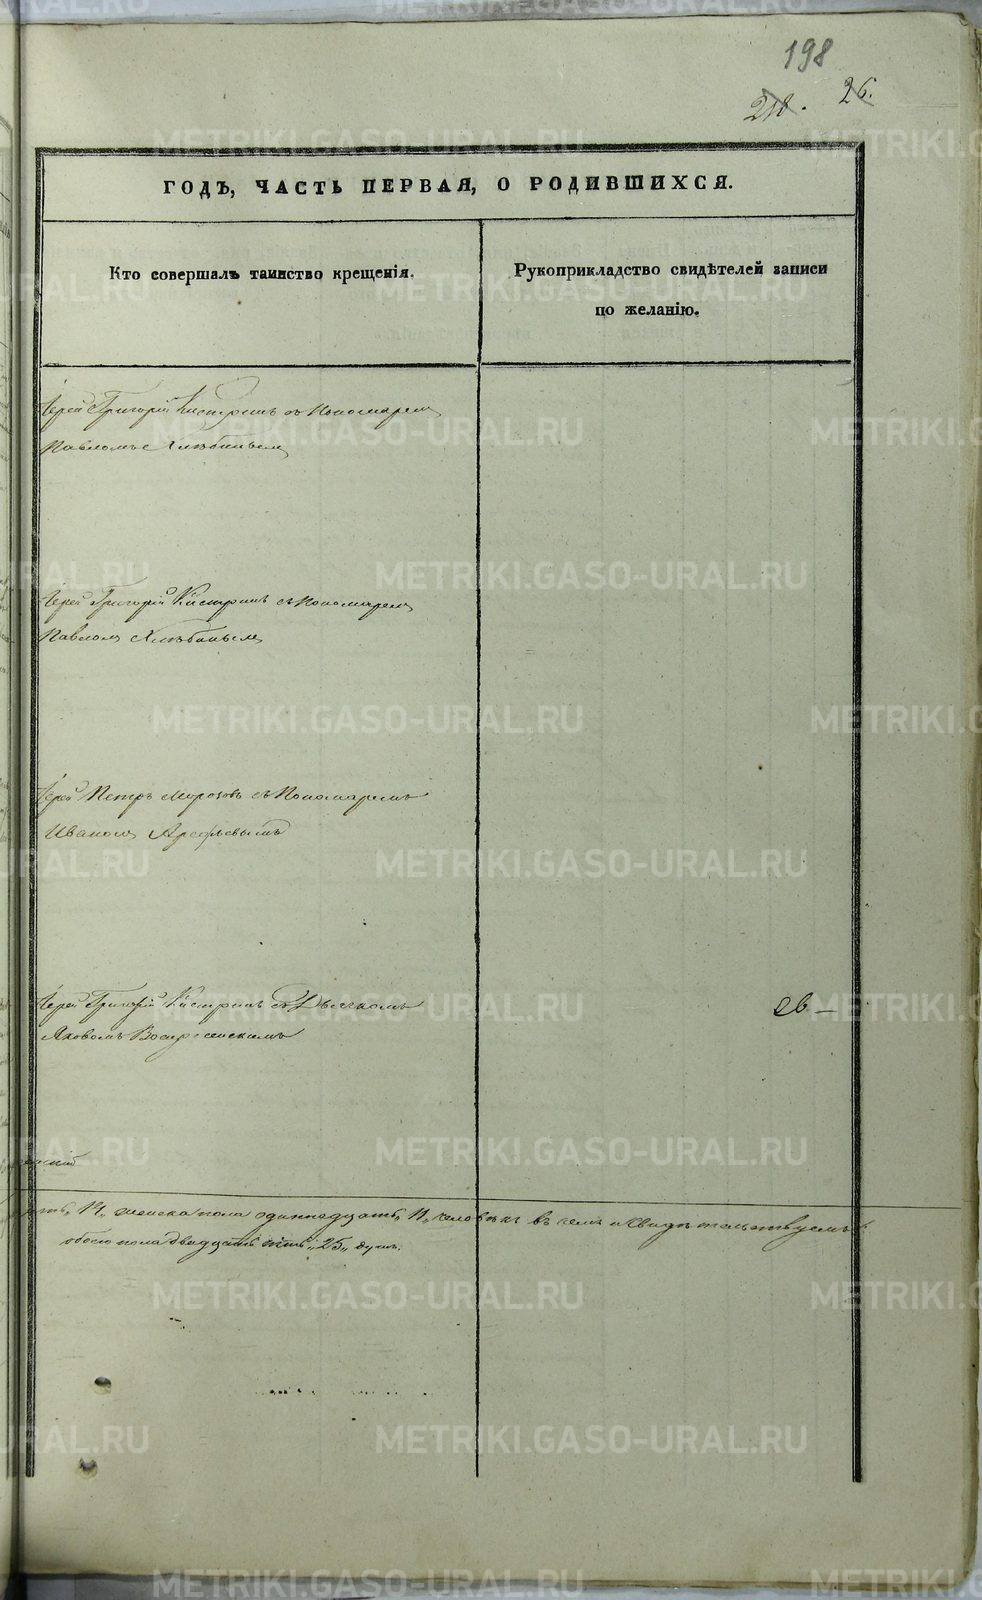 198
218. 26.
ГОДЪ, ЧАСТЬ ПЕРВАЯ, О РОДИВШИХСЯ.
Кто совершалъ таинство крещенія.
Рукоприкладство свидѣтелей записи
по желанію.
Іерей Григорій Кистринъ съ Пономаремъ
Павломъ Хлѣбинымъ
Іерей Григорій Кистринъ съ Пономаремъ
Павломъ Хлѣбинымъ
Іерей Петръ Морозовъ съ Пономаремъ
Иваномъ Арефьевымъ
Іерей Григорій Кистринъ съ Дьячкомъ
Яковомъ Воскресенскимъ
14, женска пола одиннадцать, 11, человѣкъ въ чемъ и свидѣтельствуемъ
обоего пола двадцать пять, 25, душъ.
METRIKI.GASO-URAL.RU